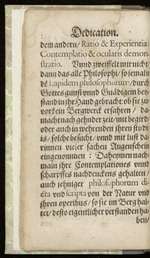 Dedication.
dem andern/ Ratio & Experientia
Contemplatio & ocularis demon-
stratio. Vnnd zweiffelt mir nicht/
dann das alle Philosophi/ so jemaln
de Lapidem philosophorum/ durch
Gottes gunst vnnd Gnädigem bey-
stand in jhr Hand gebracht ob sie zu-
vor kein Bergwerck erfahren/ da-
mach nach gehnder zeit/ mit begird
oder auch in wehrenden jhren studi-
is/ solchs besucht/ vnnd mit lust da-
rinnen vieler sachen Augenschein
eingenommen: Daher nen nach-
maln jhre Contemplationes vnnd
scharpffes nachdenckens gehalten/
auch jehniger philosophorum di-
cta vnd scripta von der Natur vnd
jhren operibus/ so sie im Berg hal-
ten/ desto eigentlicher verstanden ha-
ben/